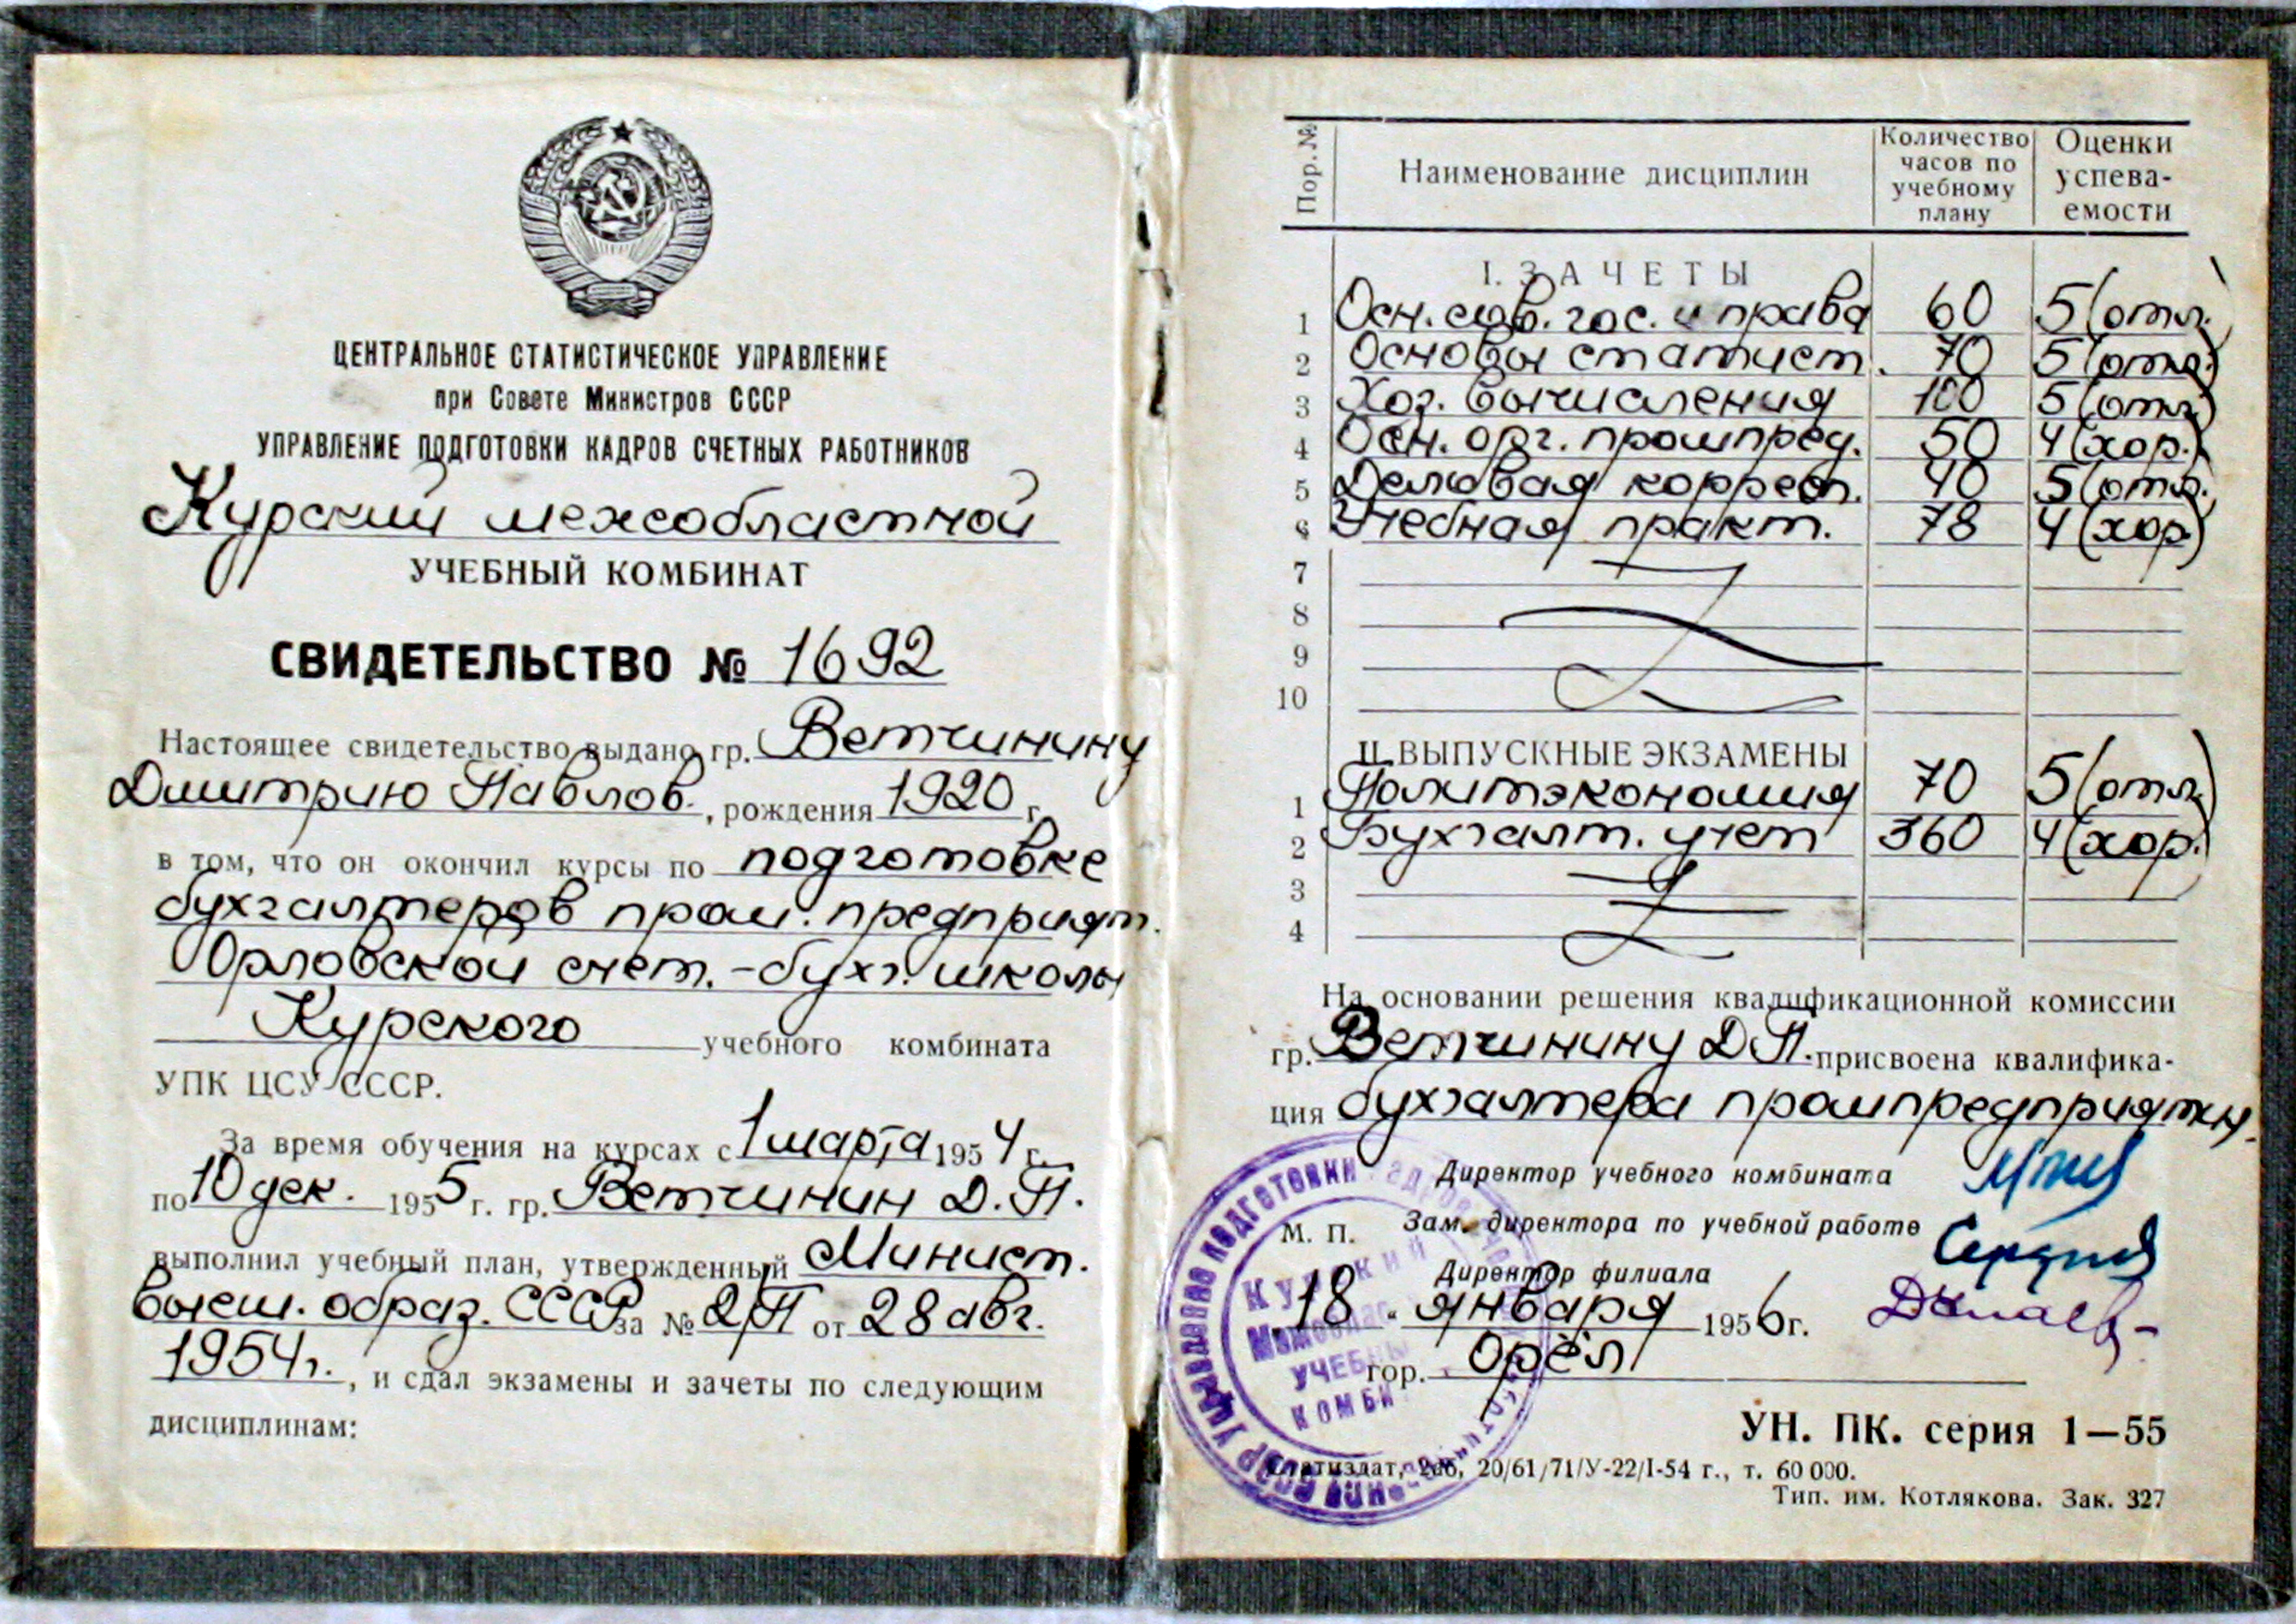 ЦЕНТРАЛЬНОЕ СТАТИСТИЧЕСКОЕ УПРАВЛЕНИЕ
при Совете Министров СССР
УПРАВЛЕНИЕ ПОДГОТОВКИ КАДРОВ СЧЕТНЫХ РАБОТНИКОВ
Курский межобластной
УЧЕБНЫЙ КОМБИНАТ
СВИДЕТЕЛЬСТВО № 1692
Настоящее свидетельство выдано гр. Ветчинину
Дмитрию Павлов., рождения 1920 г.
в том, что он окончил курсы по подготовке
бухгалтеров пром. предприят.
Орловской счет.-бухг. школы
Курского учебного комбината
УПК ЦСУ СССР.
За время обучения на курсах с 1 марта 1954 г.
по 10 дек. 1955 г. гр. Ветчинин Д.П.
выполнил учебный план, утвержденный Минист.
высш. образ. СССР за № 2/П от 28 авг.
1954 г., и сдал экзамены и зачеты по следующим
дисциплинам:
Пор. № Наименование дисциплин Количество часов по учебному плану Оценки успева-емости
I. ЗАЧЕТЫ
1 Осн. сов. гос. и права 60 5 (отл.)
2 Основы статист. 70 5 (отл.)
3 Хоз. вычисления 100 5 (отл.)
4 Осн. орг. промпред. 50 4 (хор.)
5 Деловая корресп. 40 5 (отл.)
6 Учебная практ. 78 4 (хор)
7
8
9
10
II. ВЫПУСКНЫЕ ЭКЗАМЕНЫ
1 Политэкономия 70 5 (отл.)
2 Бухгалт. учет 360 4 (хор.)
3
4
На основании решения квалификационной комиссии
гр. Ветчинину Д.П. присвоена квалифика-
ция бухгалтера промпредприятий.
Директор учебного комбината
М. П. Зам. директора по учебной работе
Директор филиала
18 " января 1956 г.
гор. Орёл
КУРСКИЙ
УЧЕБНЫ
КОМБИ
УН. ПК. серия 1—55
20/61/71/У-22/I-54 г., т. 60 000.
Тип. им. Котлякова. Зак. 327